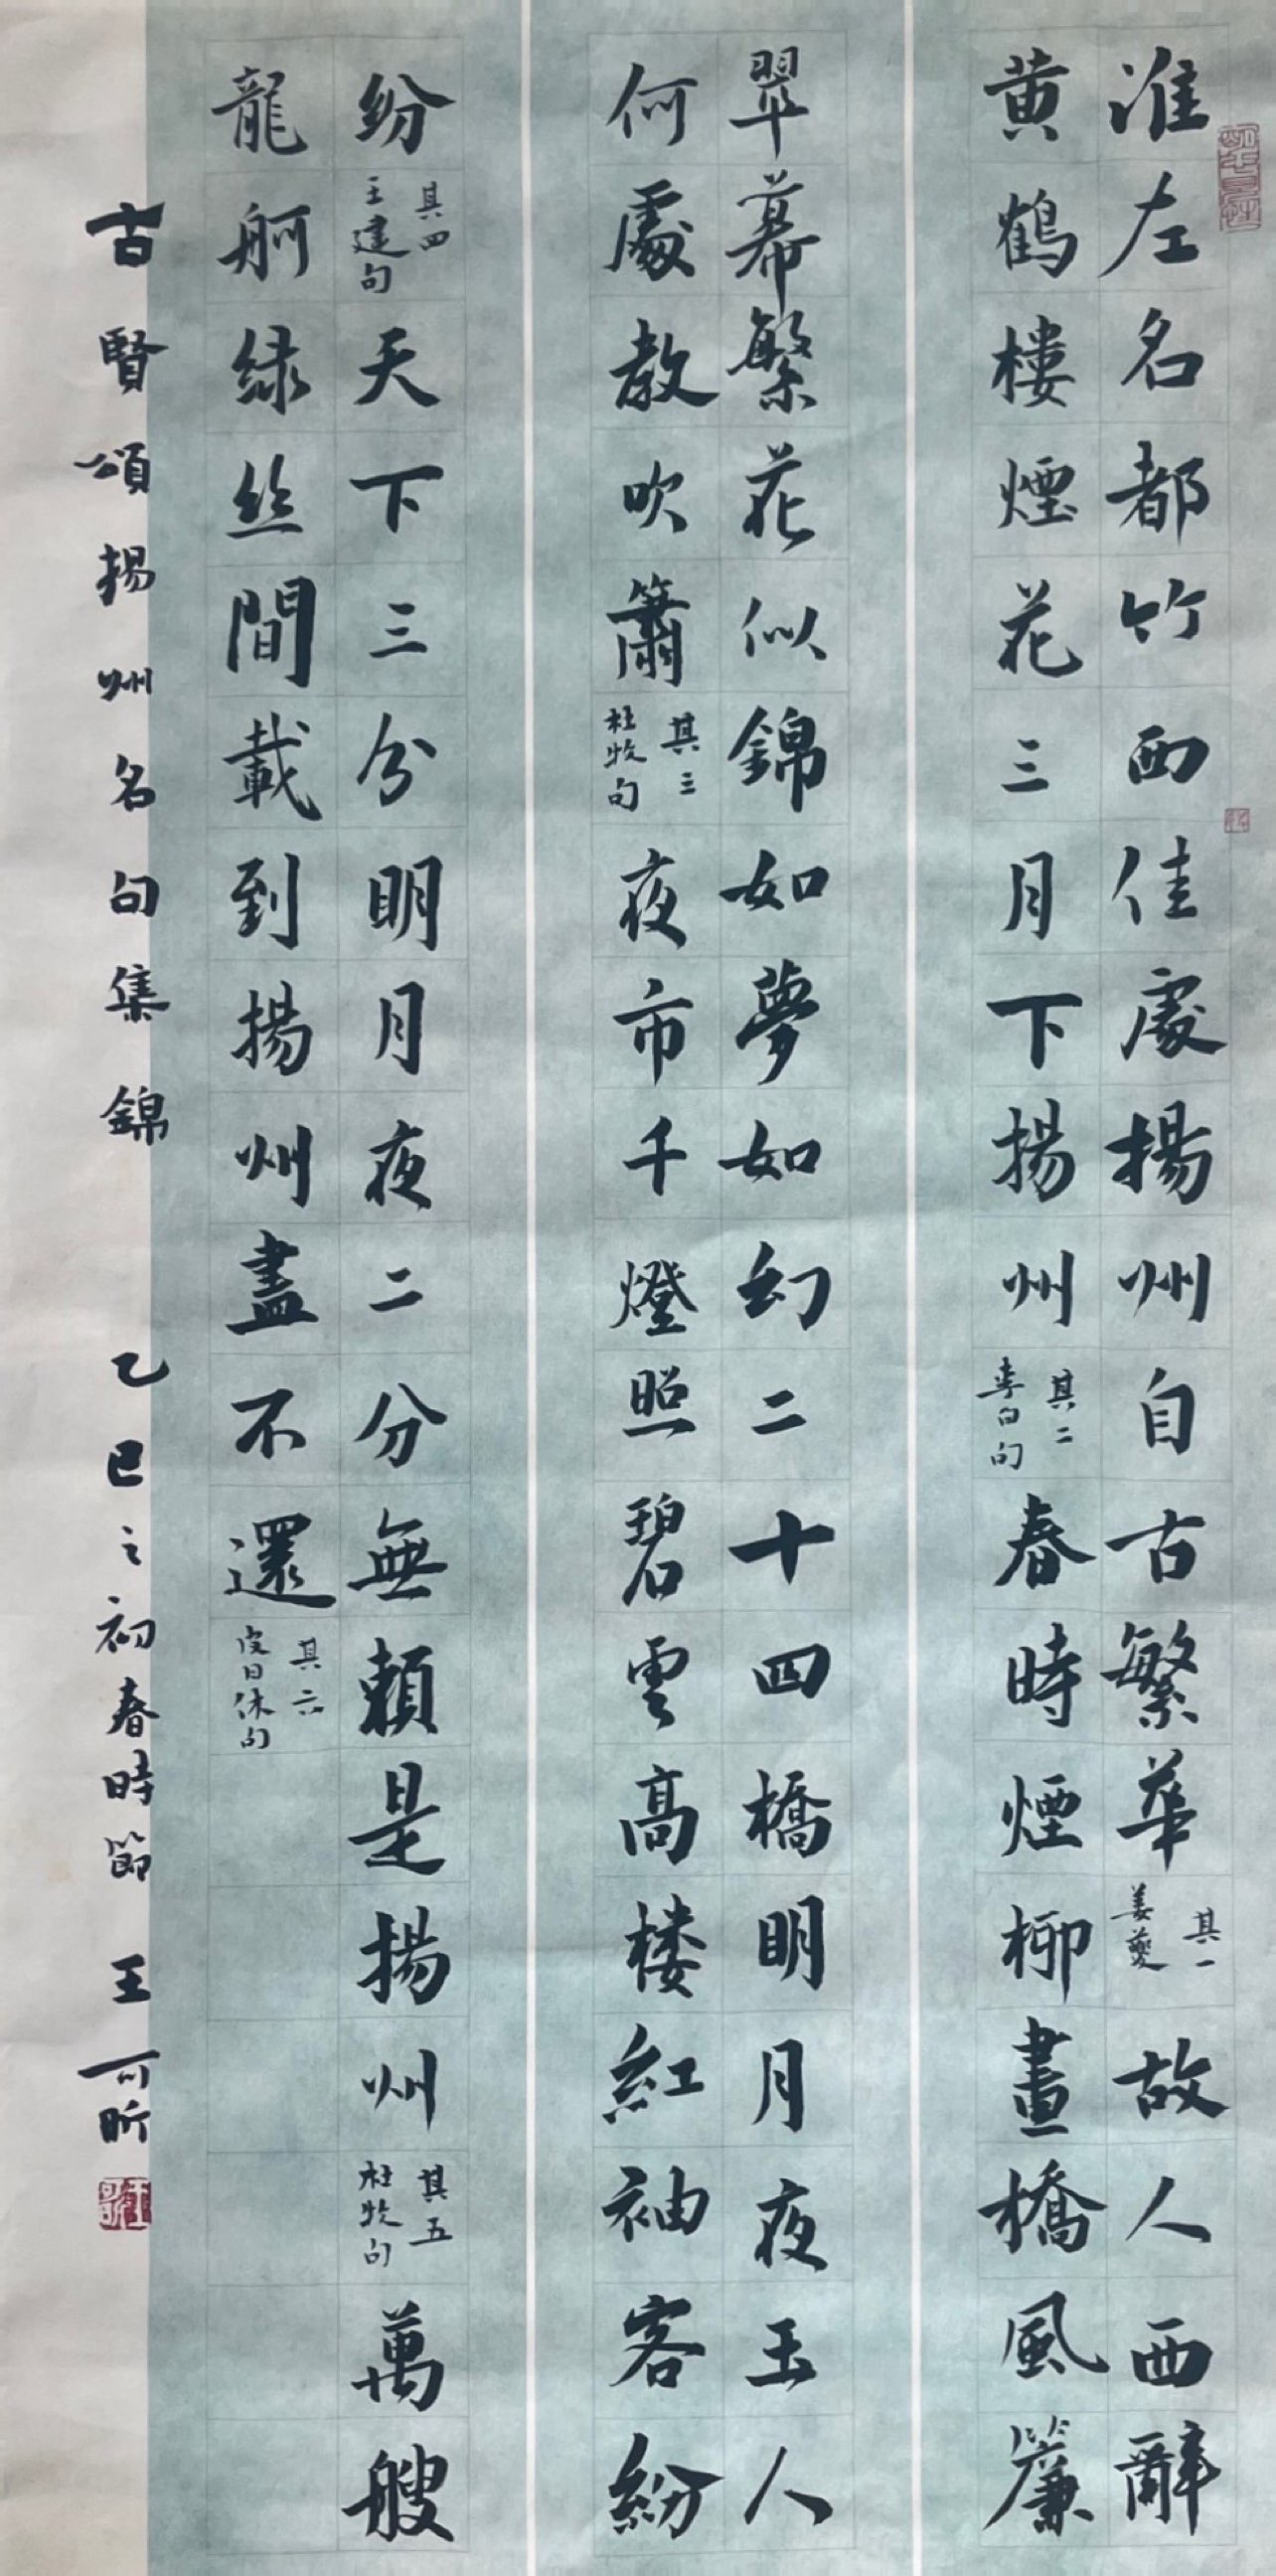 淮左名都竹西佳處揚州自古繁華 其一 姜夔 故人西辭
黄鶴樓煙花三月下揚州 其二 李白句 春時煙柳畫橋風簾
翠幕繁花似錦如夢如幻二十四橋明月夜玉人
何處教吹簫 其三 杜牧句 夜市千燈照碧雲高楼紅袖客紛
紛 其四 王建句 天下三分明月夜二分無賴是揚州 其五 杜牧句 萬艘
龍舸緑丝間載到揚州盡不還 其六 皮日休句
古賢頌揚州名句集錦 乙巳之初春時節 王可昕